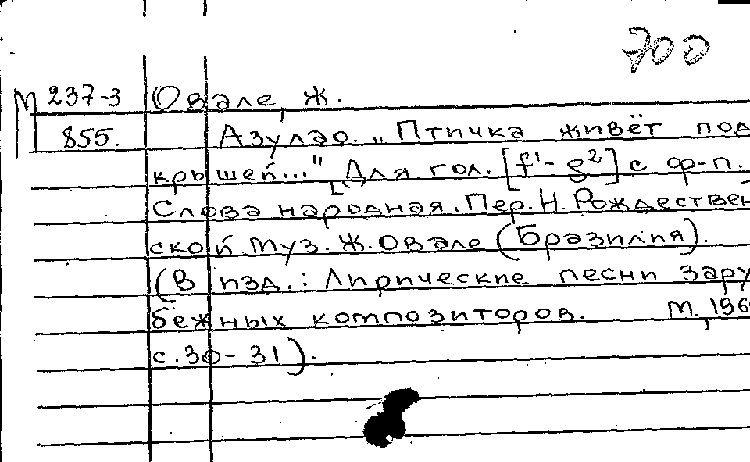 700
М 237-3 Овале, Ж.
855. Азулао. „Птичка живёт под
крышей..." [Для гол. [f¹-g²] с ф-п.
Слова народная. Пер. Н. Рождествен
ской. Муз. Ж. Овале (Бразилия).
(В изд.: Лирические песни зару
бежных композиторов. М., 196
с. 30-31).